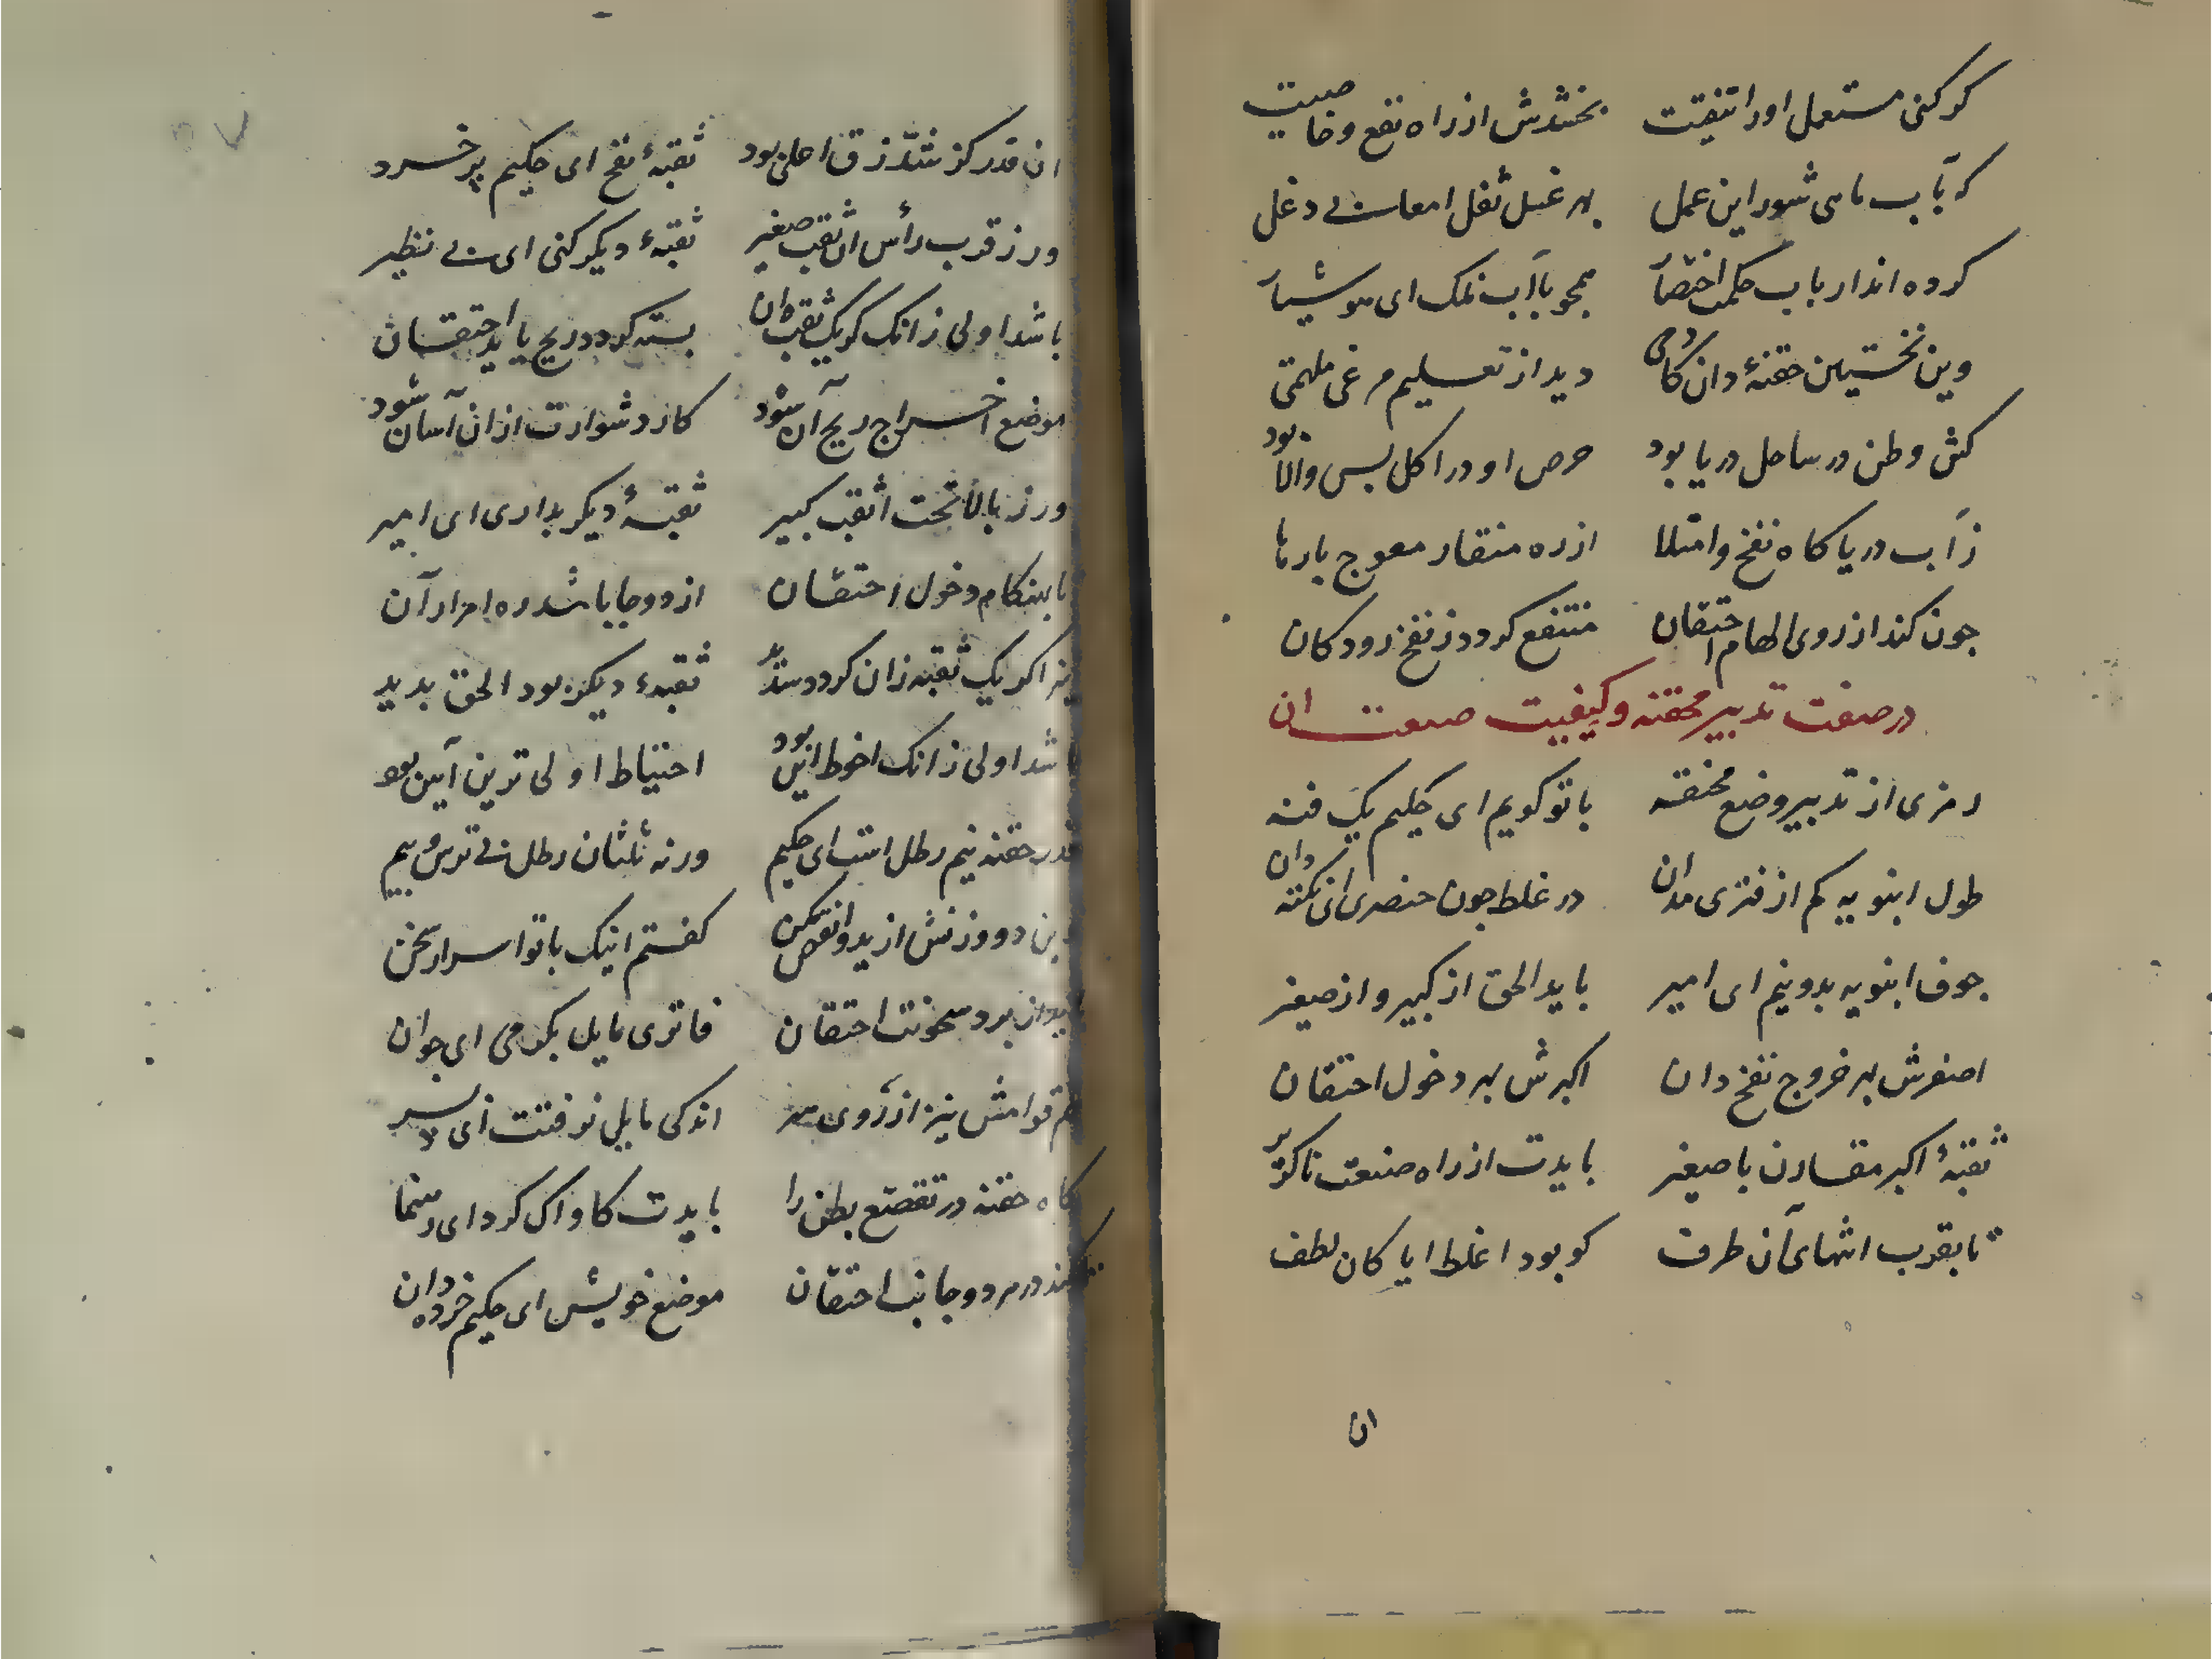 کر کنی مستعمل اورا تنقیت بخشدش از راه نفع و خاصیت
که بآب ماهی شور این عمل بهر غسل ثفل امعا بی دغل
کرده اند ارباب حکمت اختصار همچو باآب نمک ای هوشیار
وین نخستین حقنهٔ دان کادمی دید از تعلیم مرغی ملهمی
کش وطن در ساحل دریا بود حرص او در اکل بس والا بود
زآب دریا کاه نفخ و امتلا از ره منقار معوج بارها
چون کند از روی الهام احتقان منتفع کردد ز نفخ رودکان
در صفت تدبیر محقنه و کیفیت صنعت ان
رمزی از تدبیر وضع محقنه با تو کویم ای حکیم یک فنه
طول انبوبه کم از فتری مدان در غلظ چون خنصری ای نکته دان
جوف انبوبه بدو نیم ای امیر باید الحق از کبیر و از صغیر
اصغرش بهر خروج نفخ دان اکبرش بهر دخول احتقان
ثقبهٔ اکبر مقارن با صغیر بایدت از راه صنعت ناکزیر
تا بقرب انتهای آن طرف کو بود اغلظ ایا کان لطف
ان
ان قدر کز شدّ زق اعلی بود ثقبهٔ نفخ ای حکیم پر خرد
ور ز قرب رأس ان ثقب صغیر ثقبهٔ دیکر کنی ای بی نظیر
باشد اولی زانک کر یک ثقبه ان بسته کردد ریح یابد احتقان
موضع اخراج ریح آن شود کار دشوارت ازان آسان شود
ور ز بالا تحت اثقب کبیر ثقبهٔ دیکر بداری ای امیر
تا بهنکام دخول احتقان از دو جا باشد ره امرار آن
اکر یک ثقبه زان کردد سدید ثقبهٔ دیکر بود الحق بدید
باشد اولی زانک احوط این بود احتیاط اولی ترین آیین بود
قدر حقنه نیم رطل است ای حکیم ورنه ثلثان رطل بی ترس و بیم
دو وزنش ازید و انقص مکن کفتم اینک با تو اسرار سخن
برد سخونت احتقان فاتری مایل بکرمی ای جوان
هم قوامش نیز از روی هنر اندکی مایل برقت ای پسر
کاه حقنه در تقصع بطن را بایدت کاواک کرد ای رهنما
تا کند در هر دو جانب احتقان موضع خویش ای حکیم خرده دان